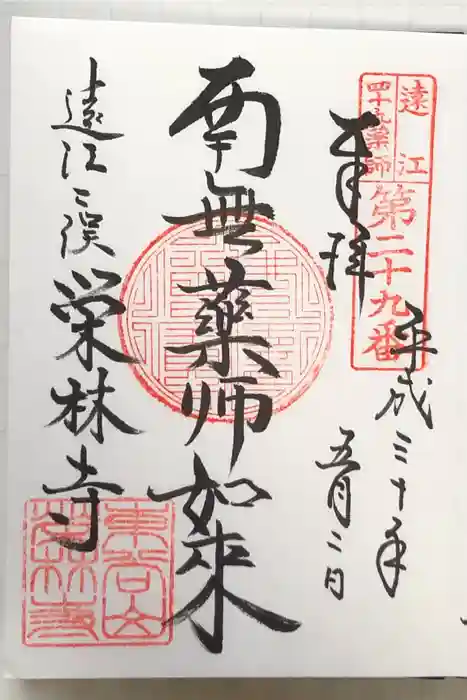 遠江
四十九薬師
第二十九番
奉拝
平成三十年
五月二日
南無薬師如来
遠江二俣
栄林寺